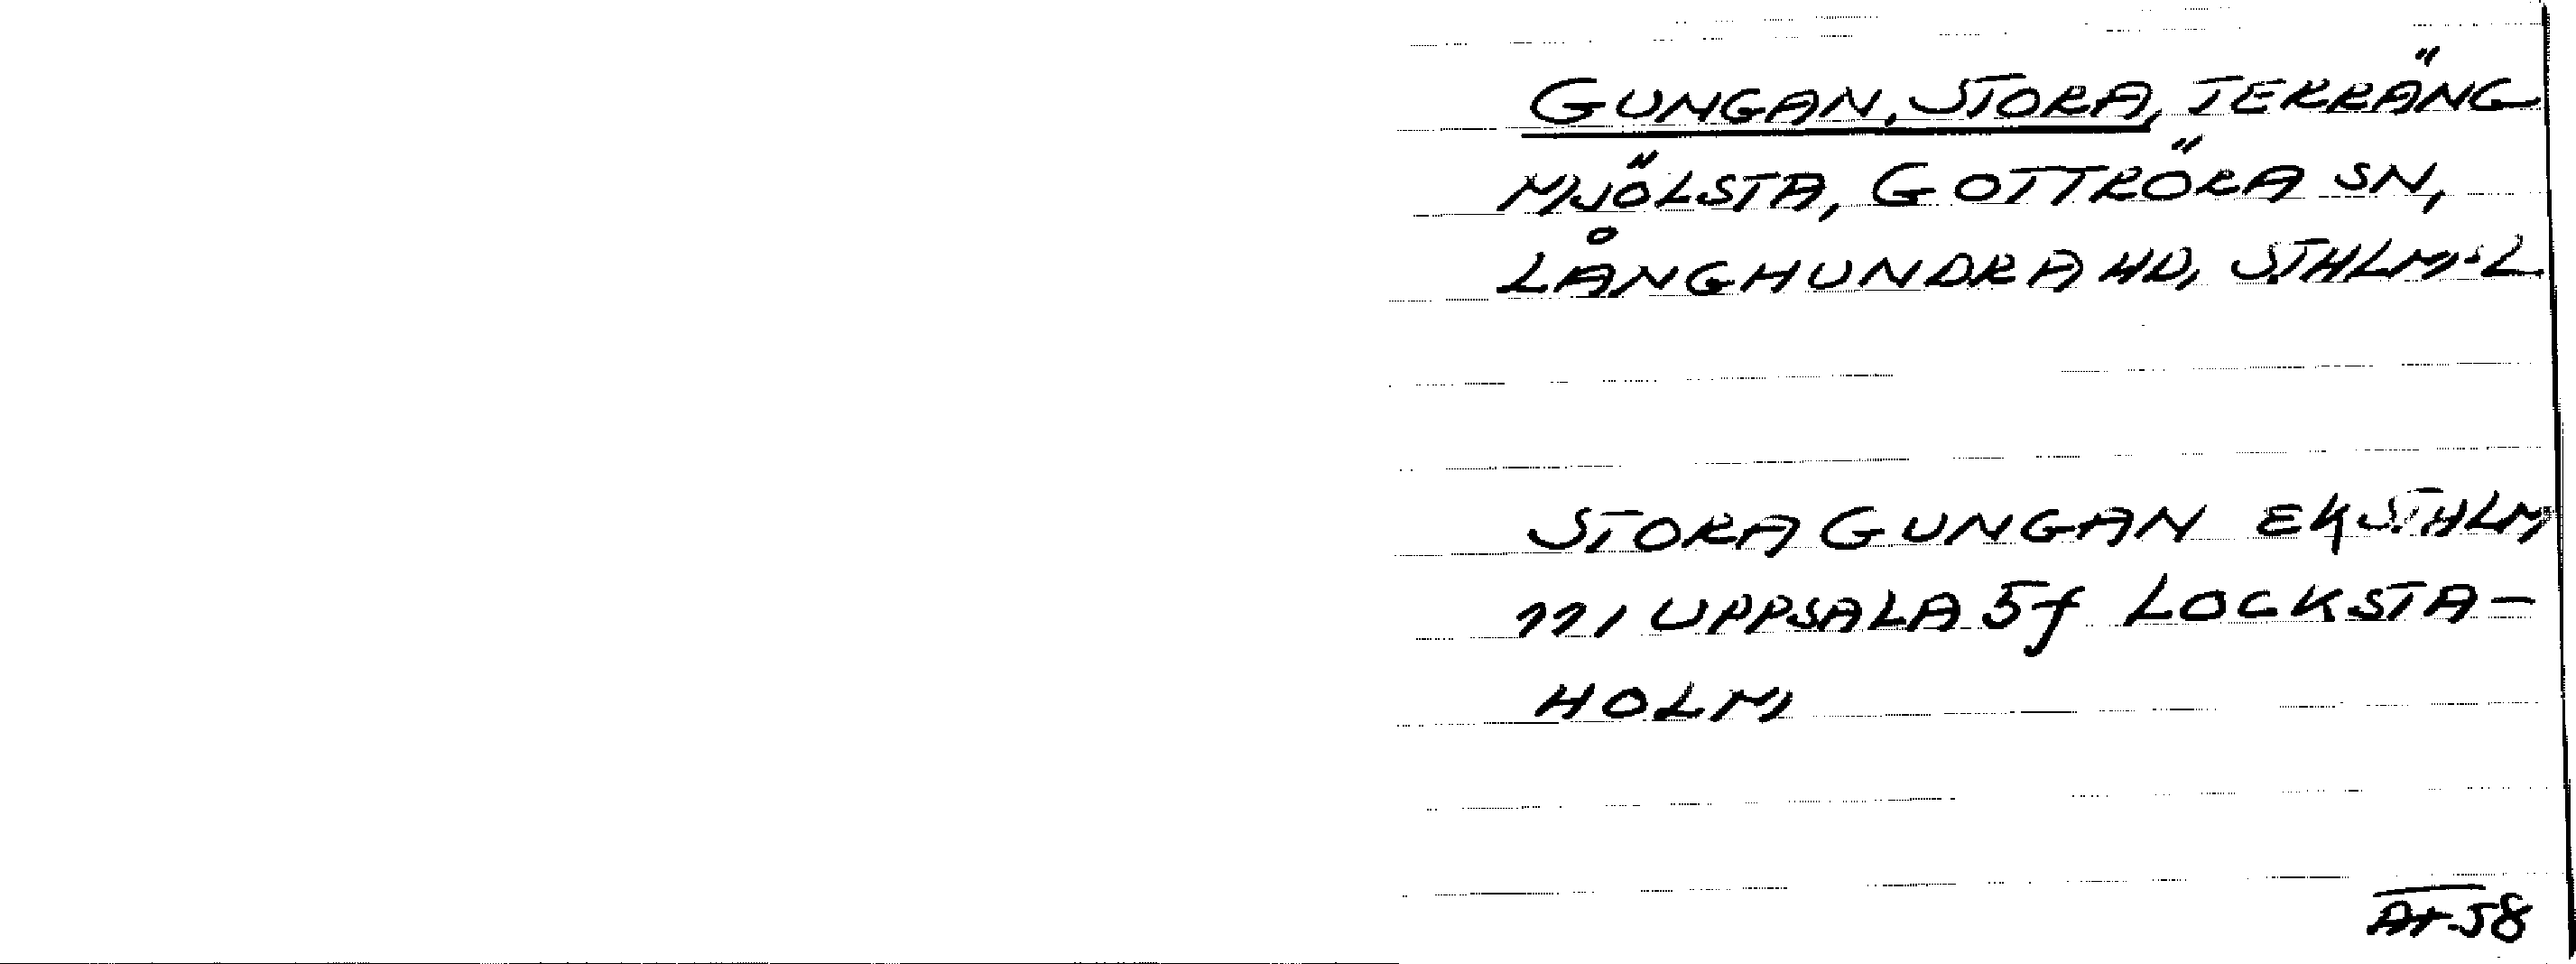 GUNGAN, STORA, TERRÄNG
MJÖLSTA, GOTTRÖRA SN,
LÅNGHUNDRA HD, STHLM:L
STORA GUNGAN EK STHLM
111 UPPSALA 5f LOCKSTA-
HOLM
58